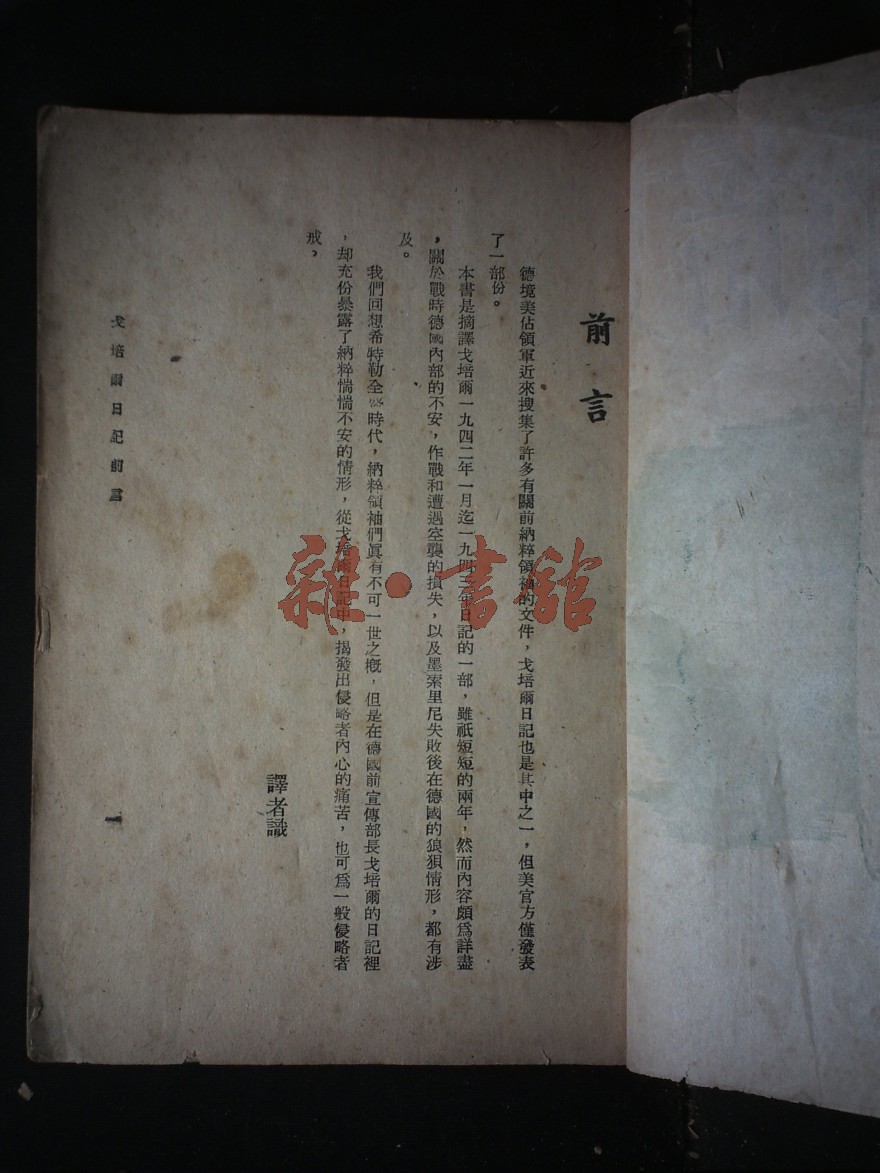 前言
德境美佔領軍近來搜集了許多有關前納粹領袖的文件，戈培爾日記也是其中之一，但美官方僅發表
了一部份。
本書是摘譯戈培爾一九四二年一月迄一九四三年日記的一部，雖祇短短的兩年，然而內容頗爲詳盡
，關於戰時德國內部的不安，作戰和遭遇空襲的損失，以及墨索里尼失敗後在德國的狼狽情形，都有涉
及。
我們回想希特勒全盛時代，納粹領袖們眞有不可一世之概，但是在德國前宣傳部長戈培爾的日記裡
，却充份暴露了納粹惴惴不安的情形，從戈培爾日記中，揭發出侵略者內心的痛苦，也可爲一般侵略者
戒，
譯者識
戈培爾日記前言
一
雜·書館